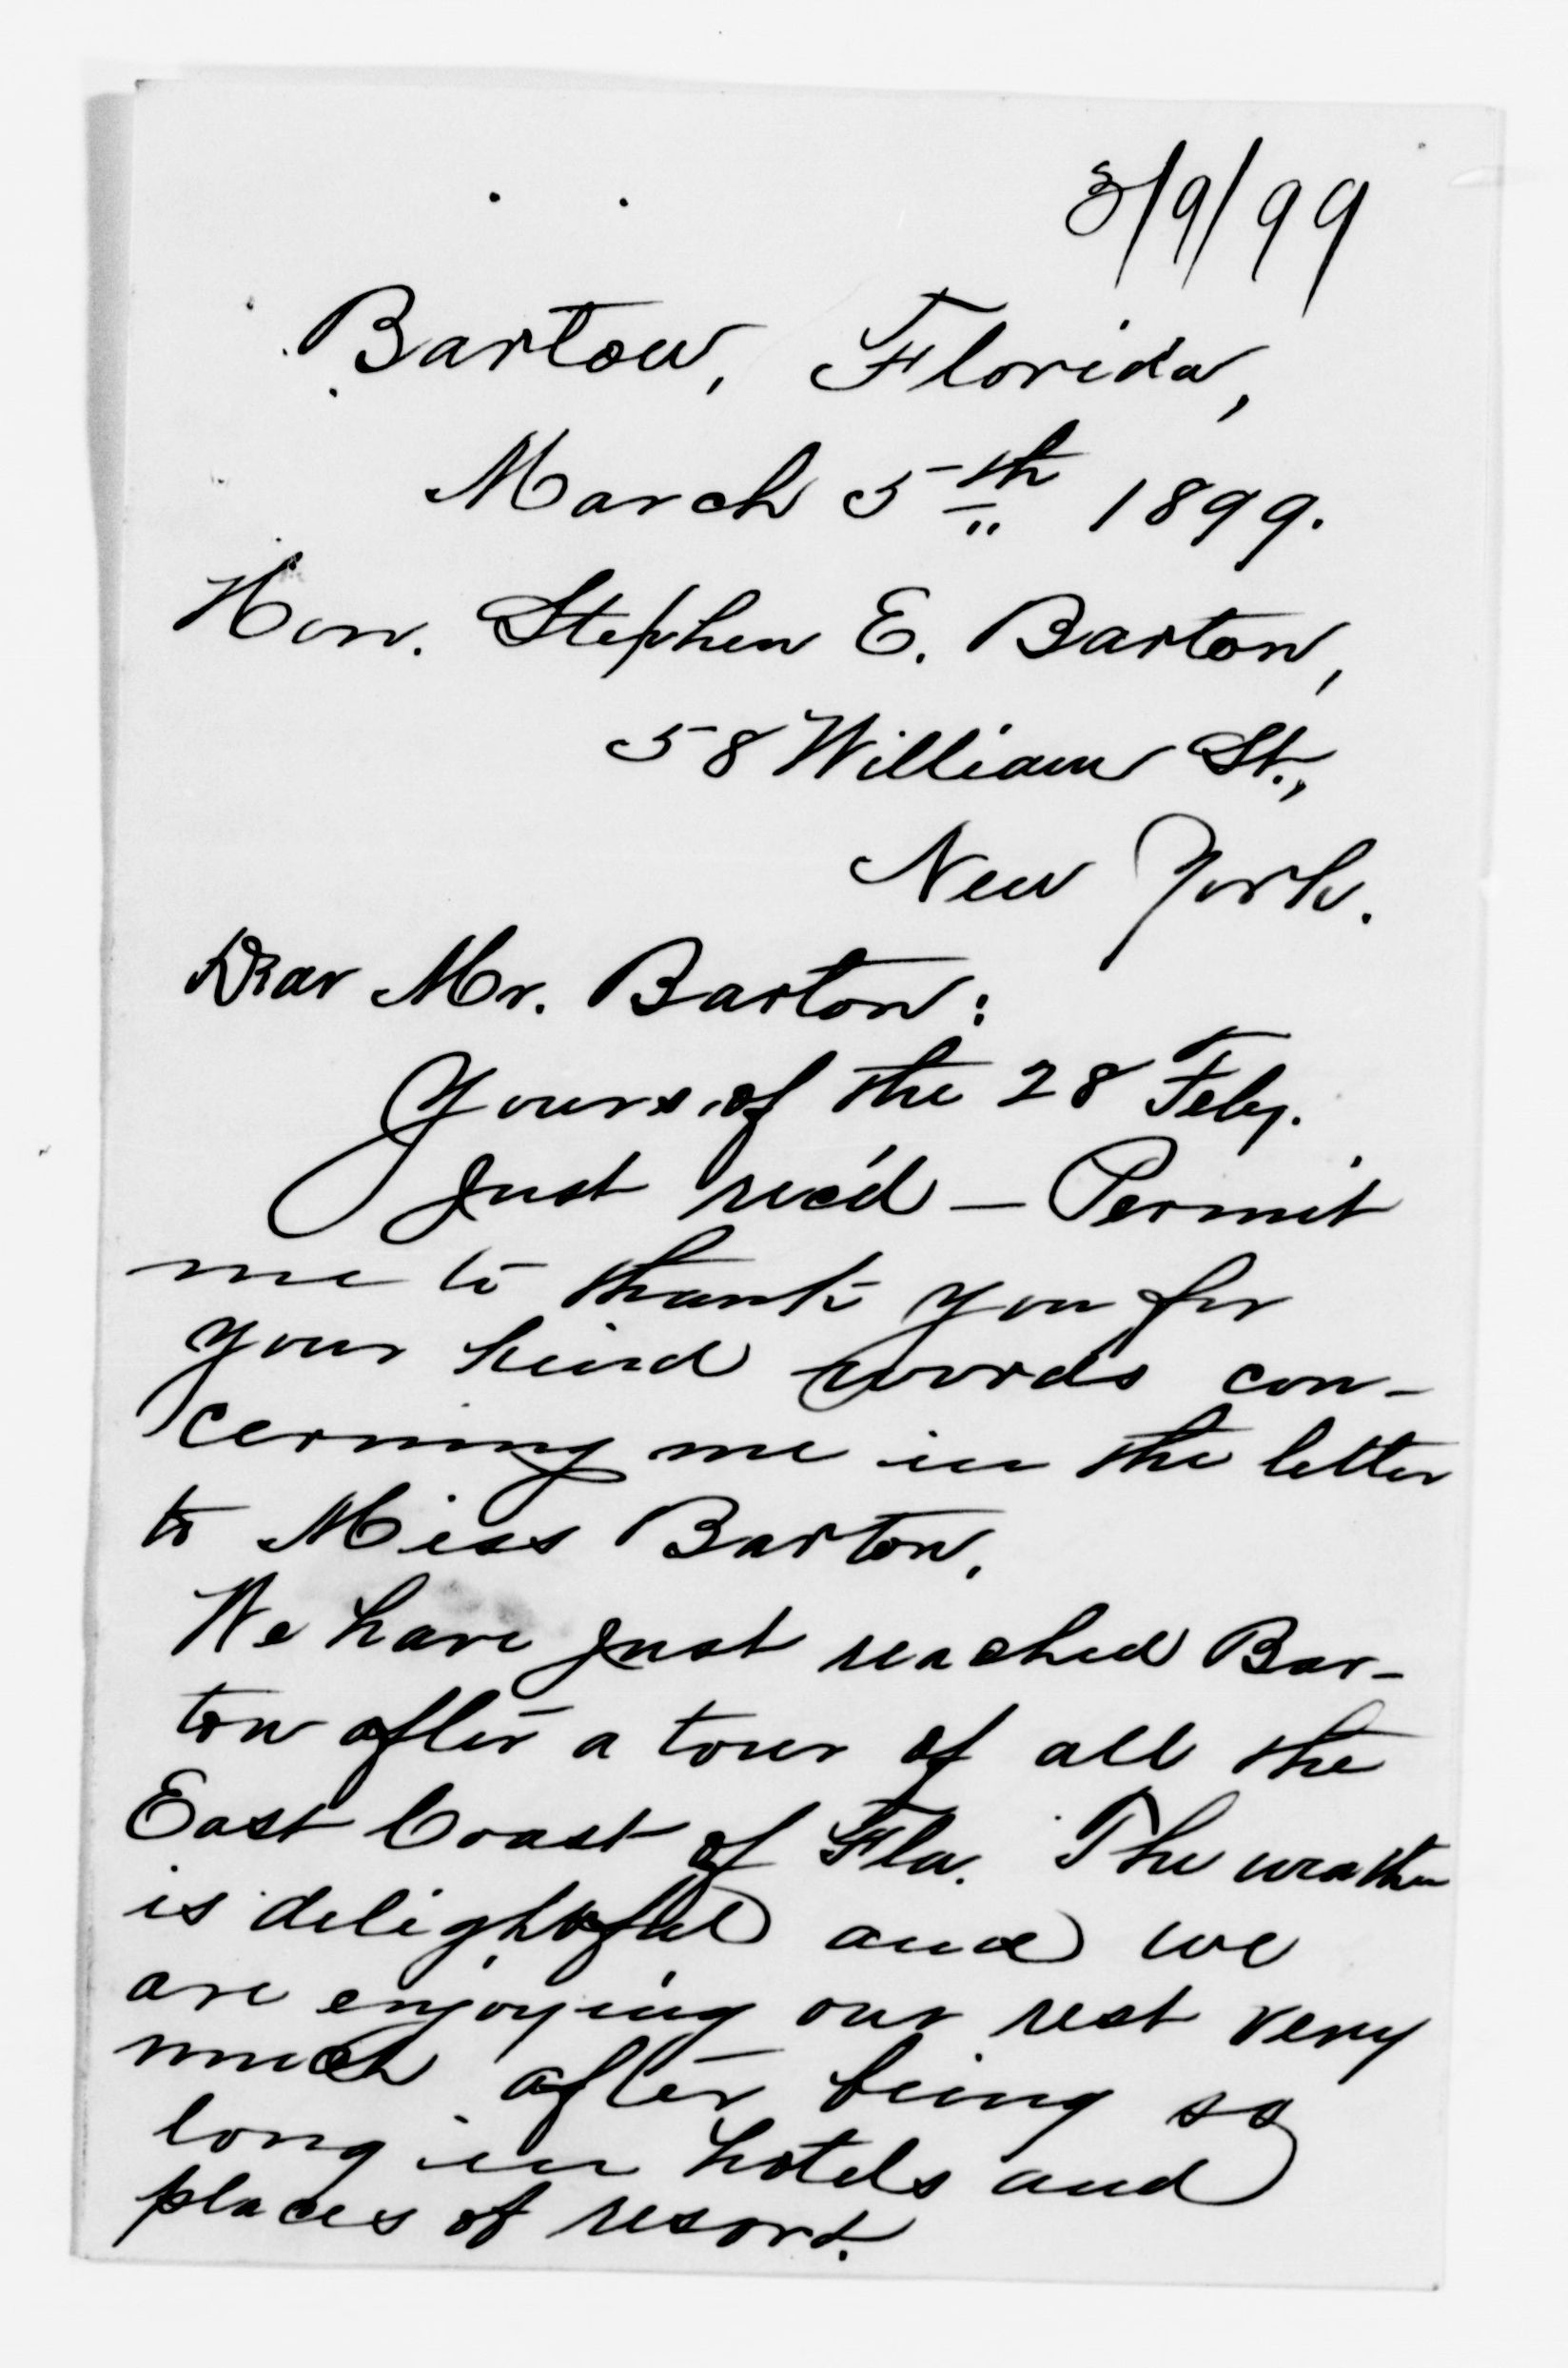 3/9/99
Bartow, Florida,
March 5th 1899.
Hon. Stephen E. Barton,
58 William St.,
New York.
Dear Mr. Barton:
Yours of the 28 Feby.
just rec'd — Permit
me to thank you for
your kind words con-
cerning me in the letter
to Miss Barton.
We have just reached Bar-
tow after a tour of all the
East Coast of Fla. The weather
is delightful and we
are enjoying our rest very
much after being so
long in hotels and
places of resort.